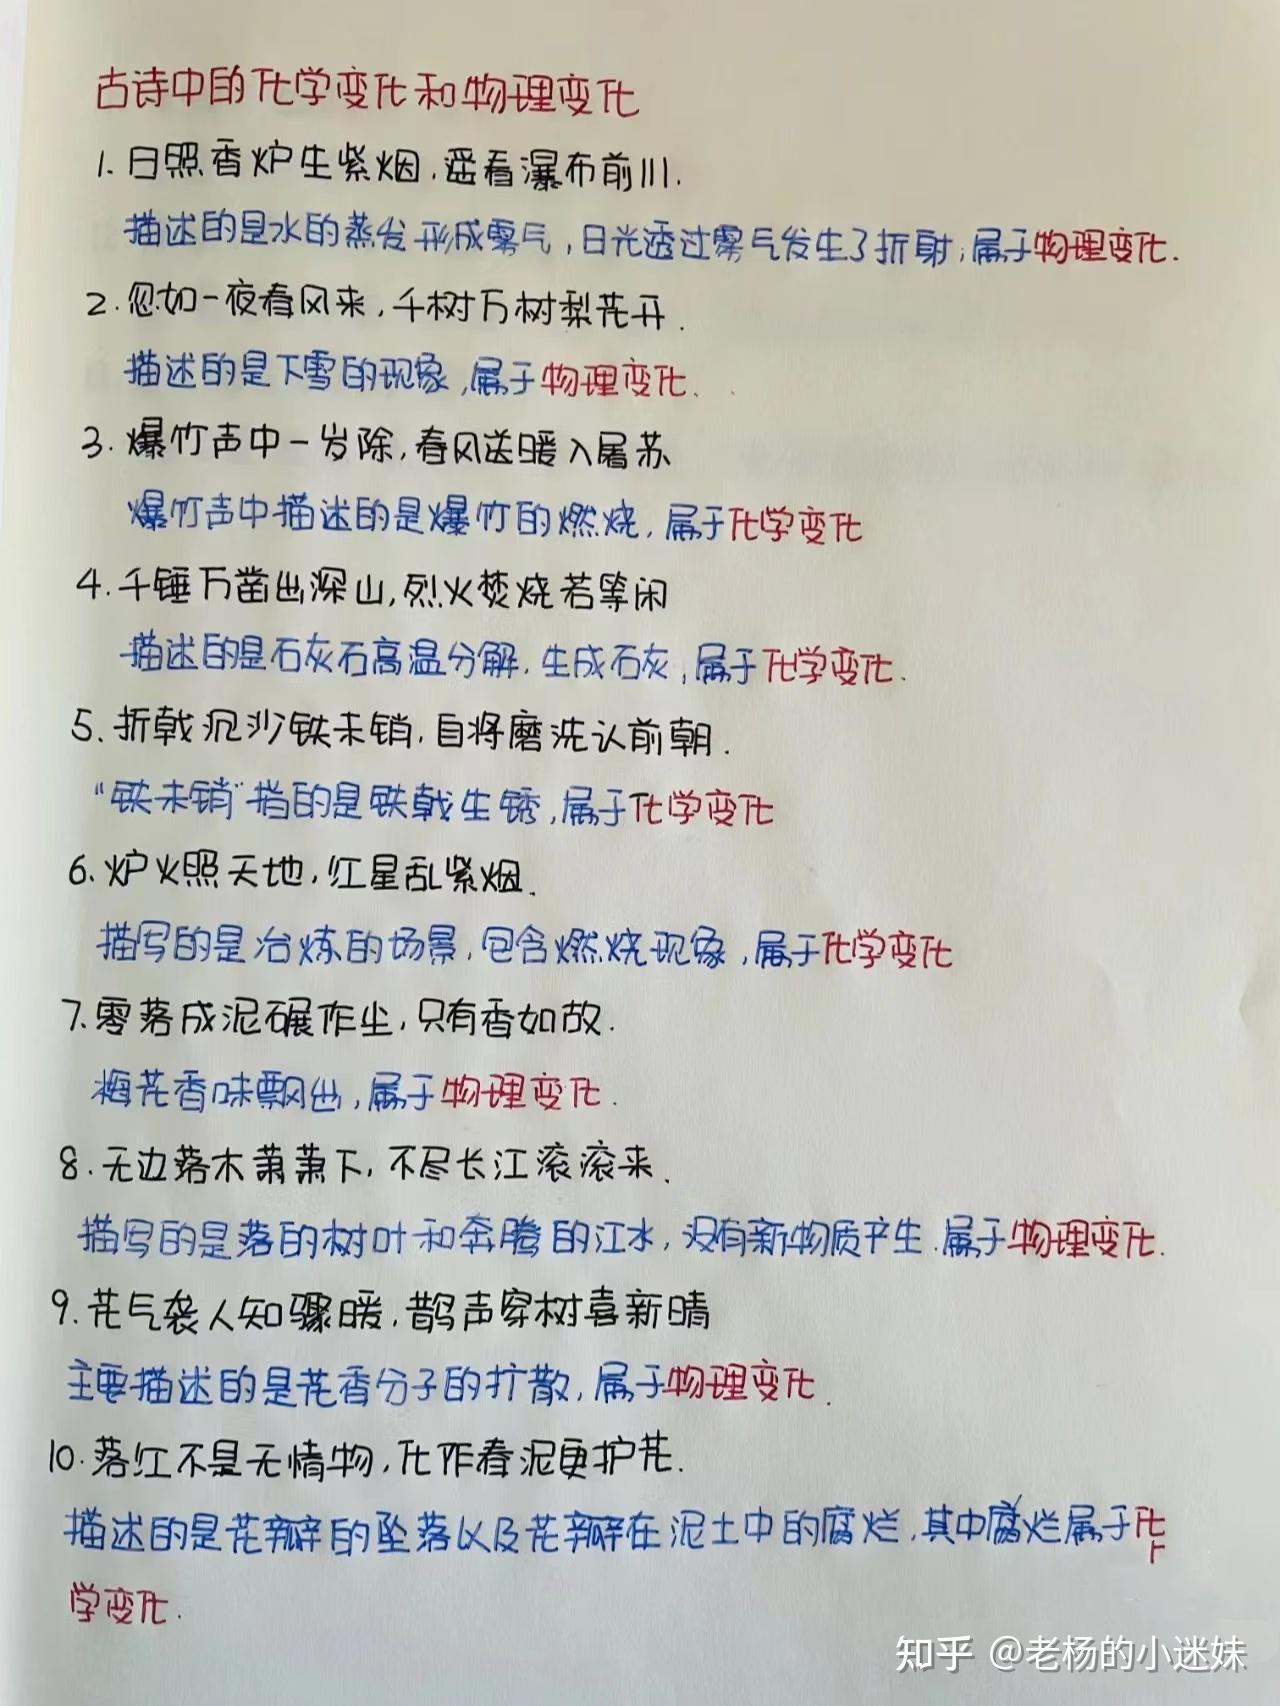 古诗中的化学变化和物理变化
1. 日照香炉生紫烟,遥看瀑布前川.
描述的是水的蒸发形成雾气,日光透过雾气发生了折射,属于物理变化.
2. 忽如一夜春风来,千树万树梨花开.
描述的是下雪的现象,属于物理变化.
3. 爆竹声中一岁除,春风送暖入屠苏
爆竹声中描述的是爆竹的燃烧,属于化学变化
4. 千锤万凿出深山,烈火焚烧若等闲
描述的是石灰石高温分解,生成石灰,属于化学变化.
5. 折戟沉沙铁未销,自将磨洗认前朝.
"铁未销"指的是铁戟生锈,属于化学变化
6. 炉火照天地,红星乱紫烟.
描写的是冶炼的场景,包含燃烧现象,属于化学变化
7. 零落成泥碾作尘,只有香如故.
梅花香味飘出,属于物理变化.
8. 无边落木萧萧下,不尽长江滚滚来.
描写的是落的树叶和奔腾的江水,没有新物质产生.属于物理变化.
9. 花气袭人知骤暖,鹊声穿树喜新晴
主要描述的是花香分子的扩散,属于物理变化.
10. 落红不是无情物,化作春泥更护花.
描述的是花瓣的坠落以及花瓣在泥土中的腐烂,其中腐烂属于化
学变化.
知乎 @老杨的小迷妹